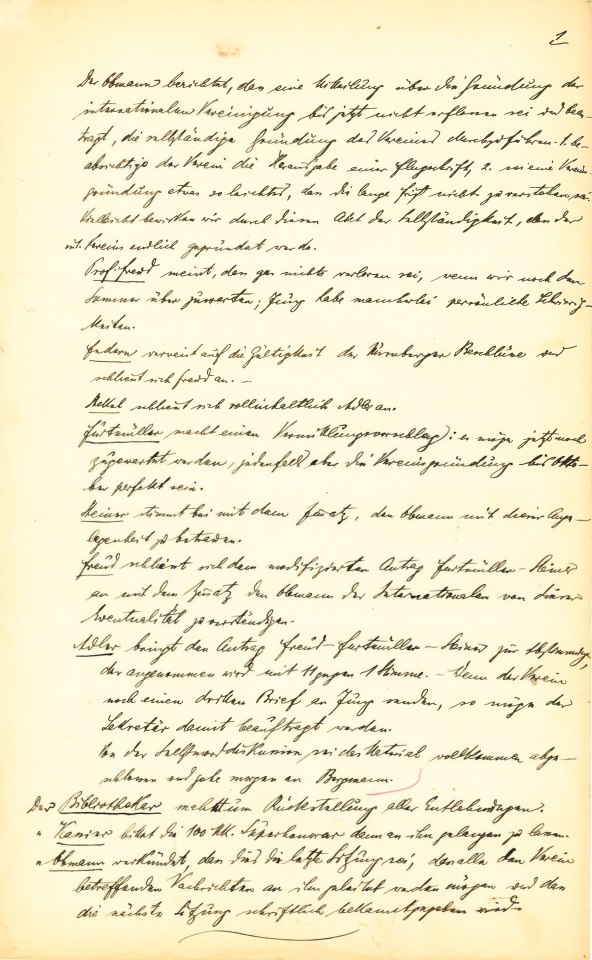 1
Der Obmann berichtet, dass eine Mitteilung über die Gründung der
internationalen Vereinigung bis jetzt nicht erflossen sei und bean-
tragt, die selbständige Gründung des Vereines durchzuführen. 1. be-
absichtige der Verein die Herausgabe einer Flugschrift, 2. sei eine Vereins-
gründung etwas so leichtes, dass die lange Frist nicht zu verstehen sei.
Vielleicht bewirken wir durch diesen Akt der Selbständigkeit, dass der
int. Verein endlich gegründet werde.
Prof. Freud meint, dass gar nichts verloren sei, wenn wir noch den
Sommer über zuwarten; Jung habe mancherlei persönliche Schwierig-
keiten.
Federn verweist auf die Gültigkeit der Nürnberger Beschlüsse und
schliesst sich Freud an. —
Stekel schliesst sich vollinhaltlich Adler an.
Furtmüller macht einen Vermittlungsvorschlag: es möge jetzt noch
zugewartet werden, jedenfalls aber die Vereinsgründung bis Okto-
ber perfekt sein.
Steiner stimmt bei mit dem Zusatz, den Obmann mit dieser Ange-
legenheit zu betrauen.
Freud schliesst sich dem modifizierten Antrag Furtmüller – Steiner
an mit dem Zusatz den Obmann der Internationalen von dieser
Eventualität zu verständigen.
Adler bringt den Antrag Freud – Furtmüller – Steiner zur Abstimmung,
der angenommen wird mit 11 gegen 1 Stimme. – Wenn der Verein
noch einen dritten Brief an Jung senden, so möge der
Sekretär damit beauftragt werden.
Von der Selbstmorddiskussion sei das Material vollkommen abge-
schlossen und gehe morgen an Bergmann.
Der Bibliothekar macht um Rückstellung aller Entlehnungen.
" Kassier bittet die 100 KK. Sparkassa an ihn gelangen zu lassen.
" Obmann verkündet, dass dies die letzte Sitzung sei, dass alle den Verein
betreffenden Nachrichten an ihn geleitet werden mögen und dass
die nächste Sitzung schriftlich bekanntgegeben wird.